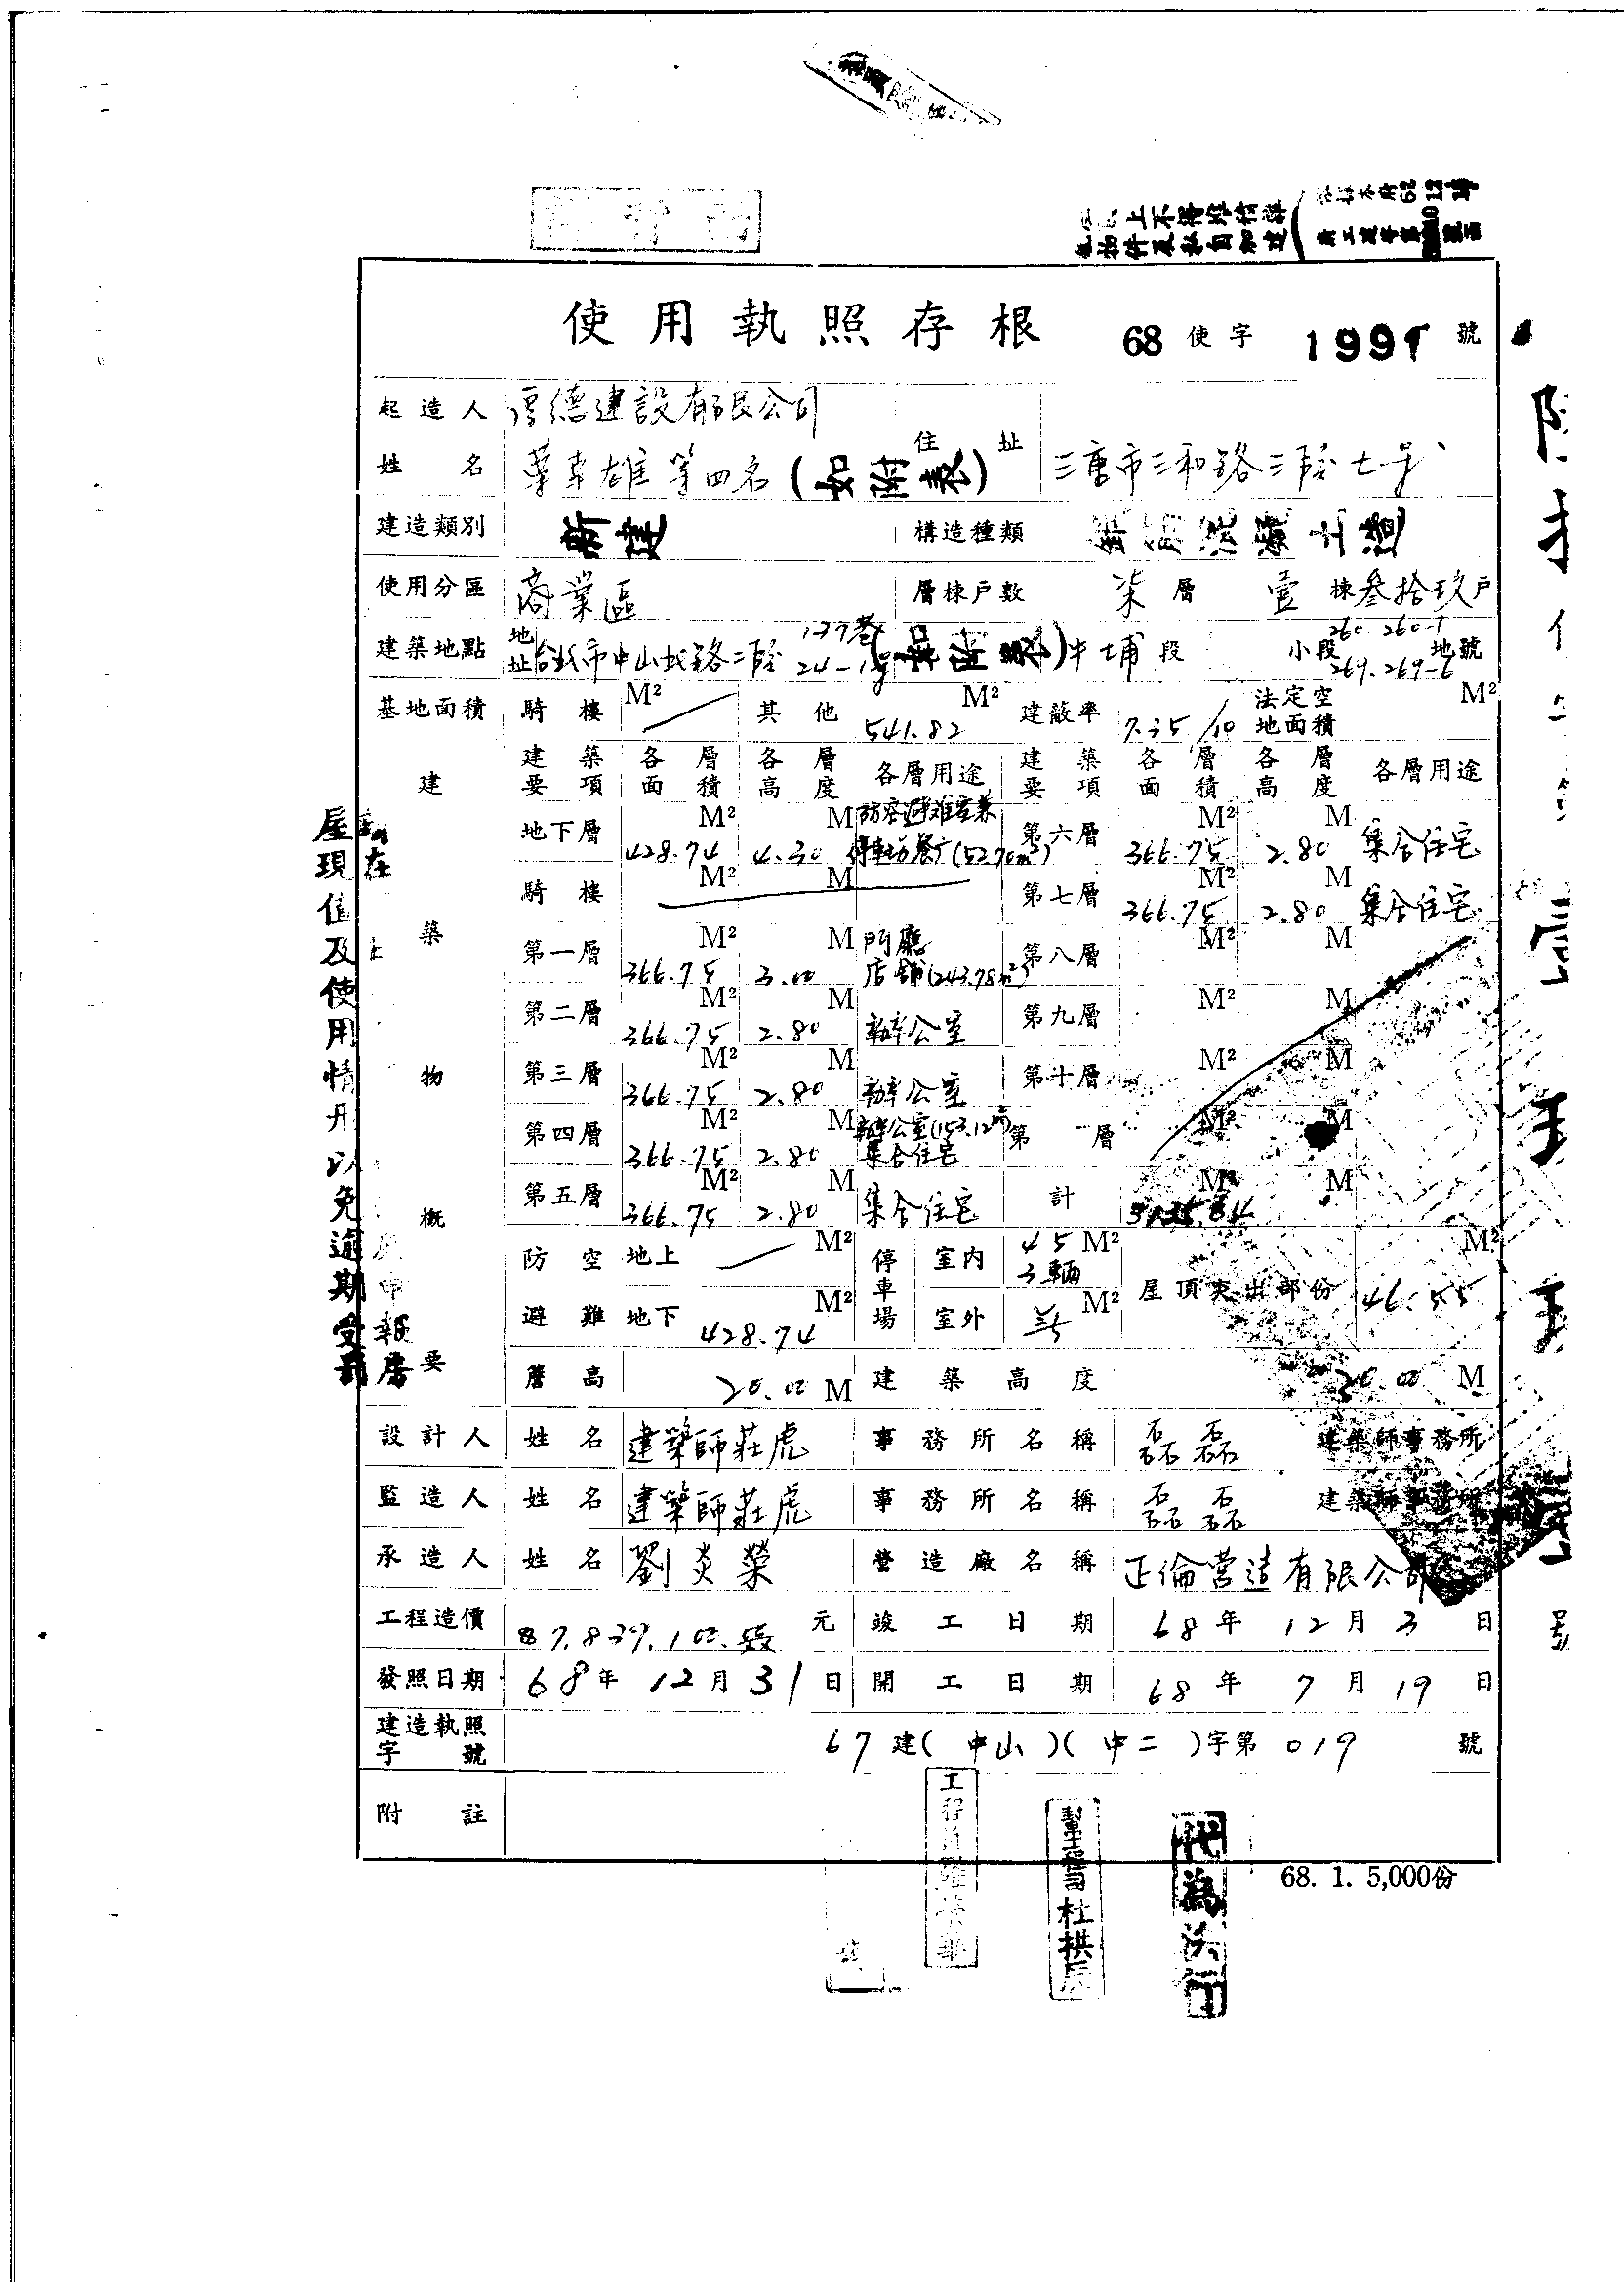 使用執照存根 68 使字 199 號
起造人 德建設有限公司
姓名 雄等四名(如附表) 住址 三重市三和路三段七号
建造類別 新建 構造種類
使用分區 商業區 層棟戶數 柒層 壹棟叁拾玖戶
建築地點 地址 台北市中山北路二段137巷24-1号(如附表) 牛埔段 小段 260. 260-1 269. 269-6 地號
基地面積 騎樓 M² 其他 541.82 M² 建蔽率 7.35/10 法定空地面積 M²
建築物概要
建築要項 各層面積 各層高度 各層用途 建築要項 各層面積 各層高度 各層用途
地下層 428.74 M² 4.30 M 防空避難室兼停車場餐厅(52.70m²) 第六層 366.75 M² 2.80 M 集合住宅
騎樓 M² M 第七層 366.75 M² 2.80 M 集合住宅
第一層 366.75 M² 3.00 M 門廳 店舖(243.78m²) 第八層 M² M
第二層 366.75 M² 2.80 M 辦公室 第九層 M² M
第三層 366.75 M² 2.80 M 辦公室 第十層 M² M
第四層 366.75 M² 2.80 M 辦公室(153.12m²) 集合住宅 第 層 M² M
第五層 366.75 M² 2.80 M 集合住宅 計 M² M
防空避難 地上 M² 停車場 室內 45 M² 3輛 屋頂突出部份 46.55 M²
地下 428.74 M² 室外 M²
簷高 20.00 M 建築高度 20.00 M
設計人 姓名 建築師莊虎 事務所名稱 磊磊 建築師事務所
監造人 姓名 建築師莊虎 事務所名稱 磊磊 建築師事務所
承造人 姓名 劉炎榮 營造廠名稱 正倫營造有限公司
工程造價 87,839,100 元 竣工日期 68年12月3日
發照日期 68年12月31日 開工日期 68年7月19日
建造執照字號 67建(中山)(中二)字第019號
附註
68. 1. 5,000份
屋現值及使用情形以免逾期受
杜拱辰
代為決行